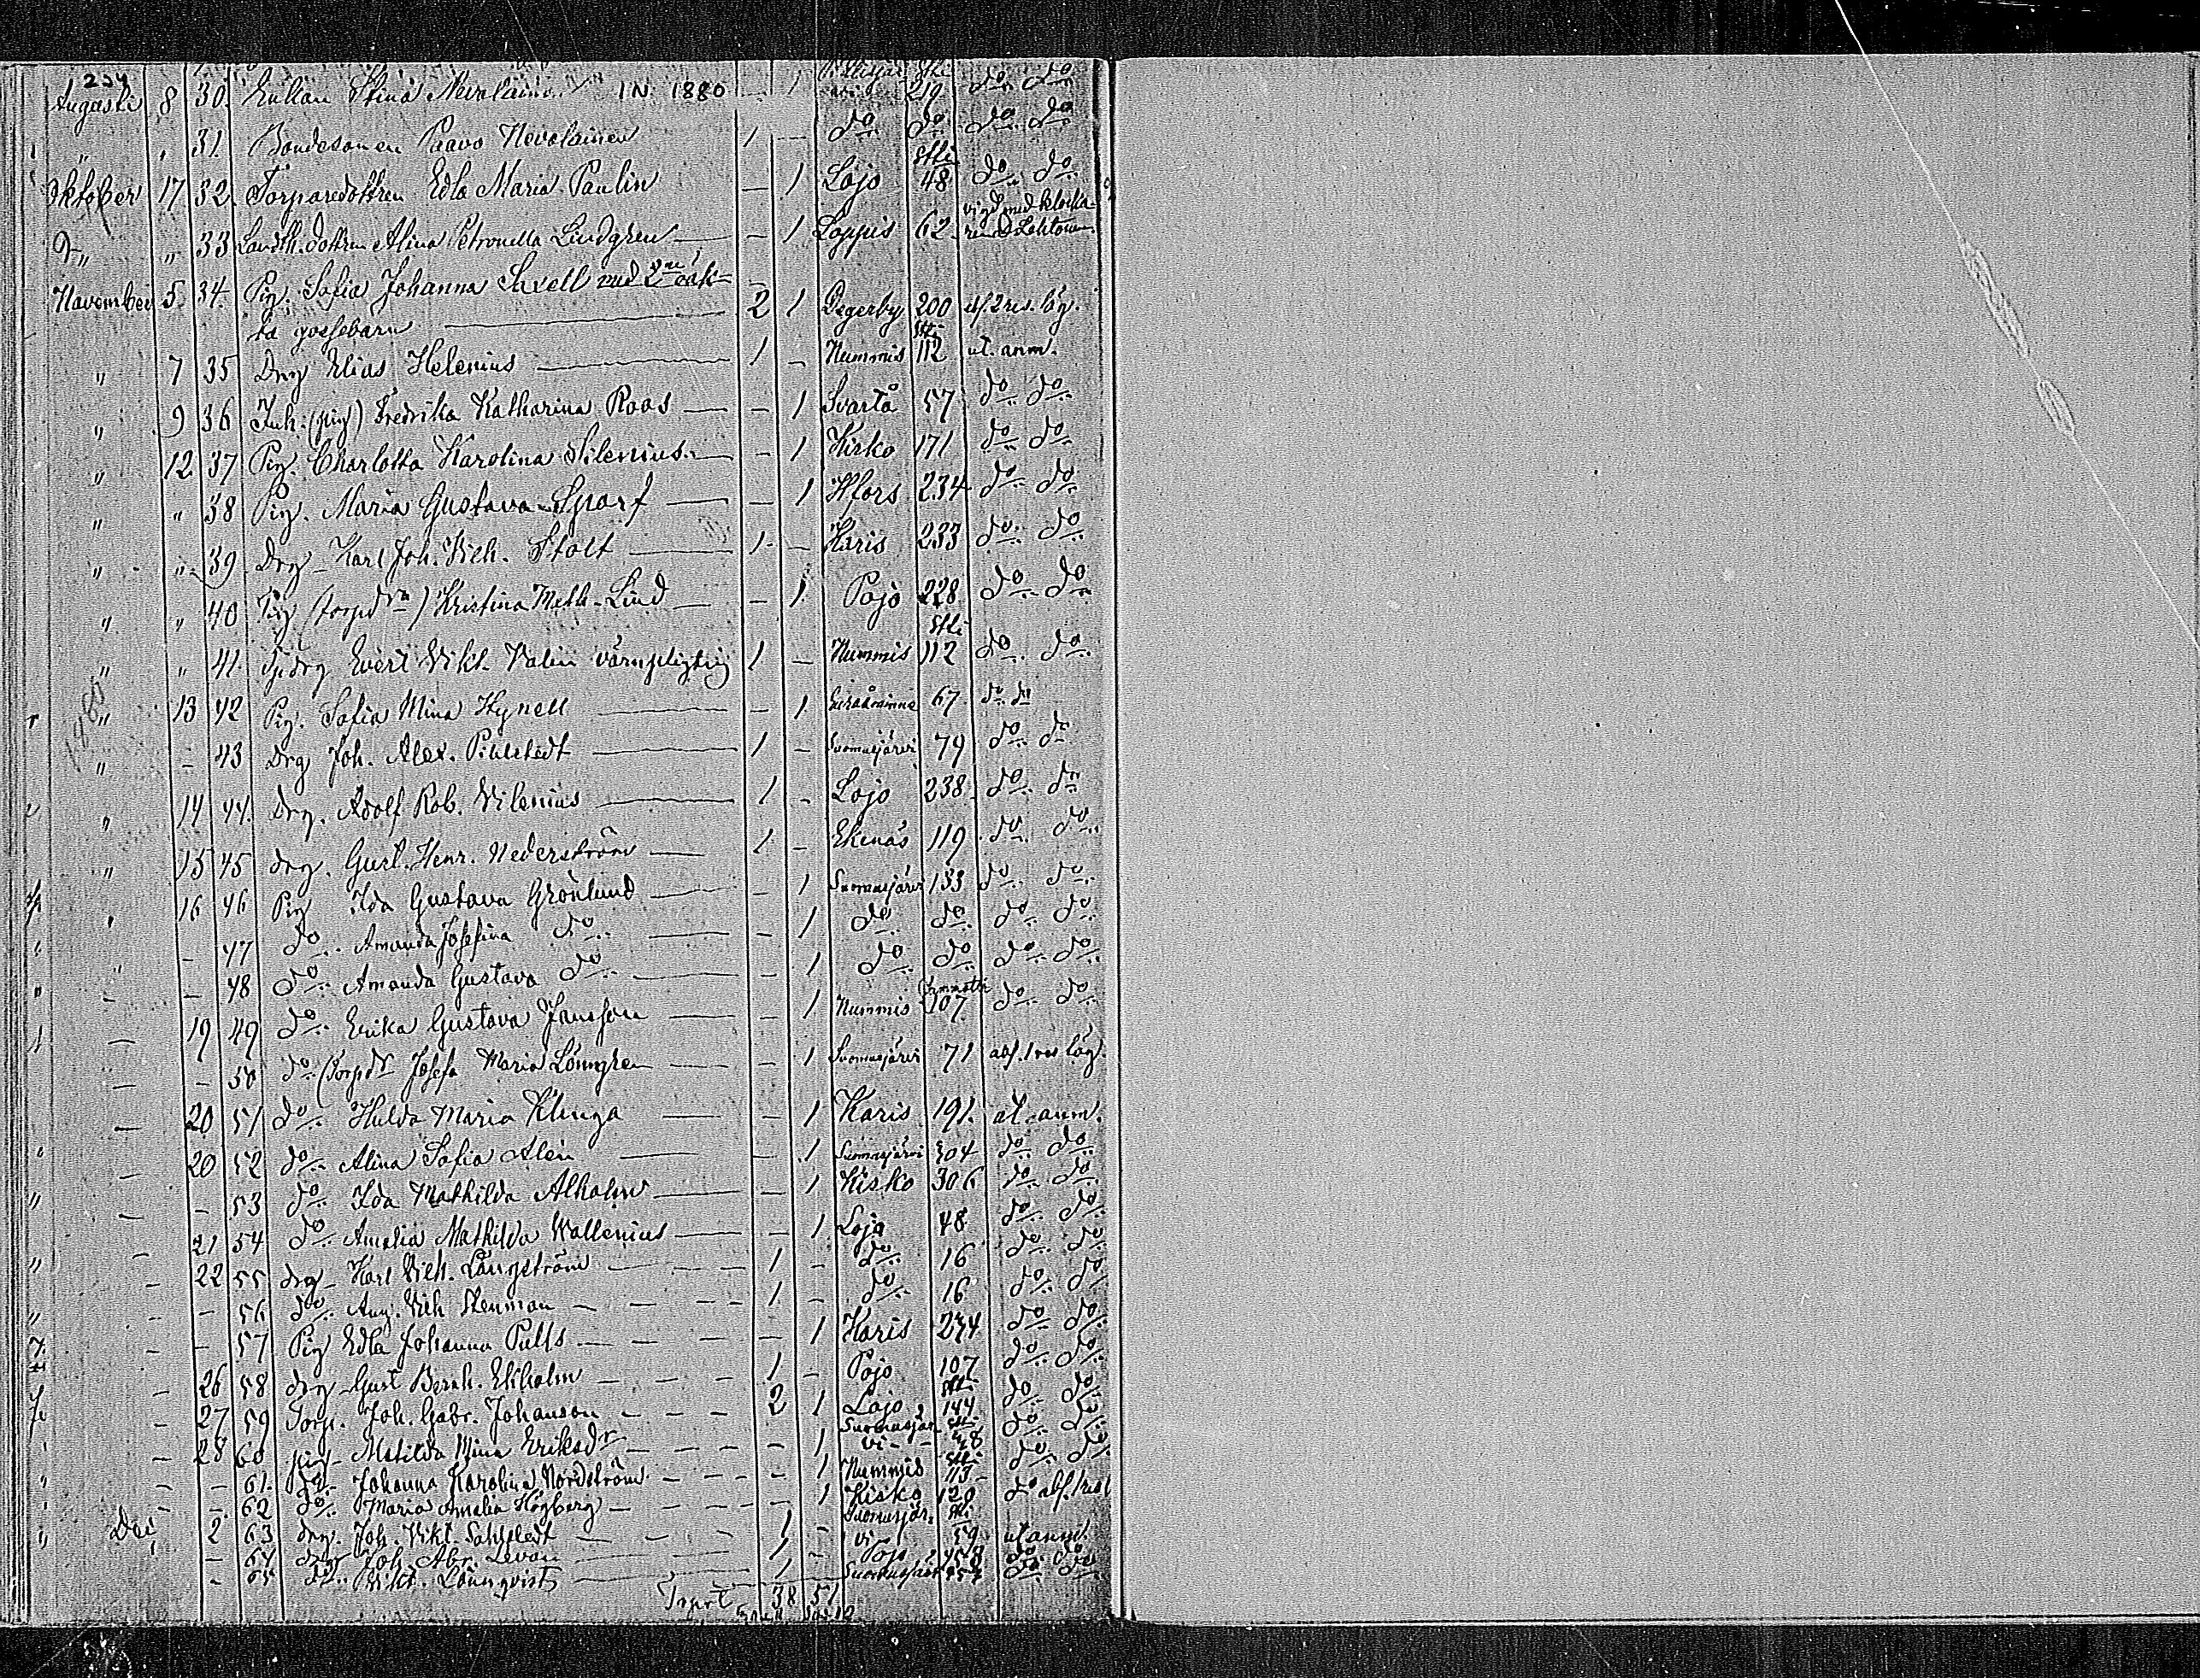 Augusti 8 30. Enkan Stina Nevalainen IN 1880 — 1 219 do do
" " 31. Bondesonen Paavo Nevalainen 1 — do do do do
Oktober 17 32. Torparedottren Edla Maria Paulin — 1 Lojo 48 do do
D:o " 33 Landth. dottren Alina Petronella Lindgren — 1 Loppis 62 vigd med klocka-
November 5 34. Pig. Sofia Johanna Saxell med 2ne oäk-
ta gossebarn 2 1 Degerby 200 af. 2 res. läg.
" 7 35 Drg Elias Helenius 1 — Nummis 112 ut. anm.
" 9 36 Inh. (pig) Fredrika Katharina Roos — 1 Svartå 57 do do
" 12 37 Pig. Charlotta Karolina Silenius — 1 Kisko 171 do do
" " 38 Pig. Maria Gustava Sparf — 1 Hfors 234 do do
" " 39 Drg Karl Joh. Vilh. Stolt 1 — Karis 233 do do
" " 40 Pig (torpd:r) Kristina Math. Lind — 1 Pojo 228 do do
" " 41. Drg Evert Vikt. Valin värnpligtig 1 — Nummis 112 do do
" 13 42 Pig. Sofia Mina Hynell — 1 67 do do
" – 43 Drg Joh. Alex. Pihlstedt 1 — Suomusjärvi 79 do do
" 14 44. Drg. Adolf Rob. Vilenius 1 — Lojo 238 do do
" 15 45 Drg. Gust. Henr. Nederström 1 — Ekenäs 119 do do
" 16 46 Pig Ida Gustava Grönlund — 1 Suomusjärvi 133 do do
" – 47 do Amanda Josefina do — 1 do do do do
– – 48 do Amanda Gustava do — 1 do do do do
– 19 49 do Erika Gustava Jansson — 1 Nummis 107 do do
– – 50 do (Torpd:r Josefa Maria Lönngren — 1 Suomusjärvi 71 abs. 1 res läg.
– 20 51 do Hulda Maria Klinga — 1 Karis 191. ut anm.
– 20 52 do Alina Sofia Alén — 1 Suomusjärvi 304 do do
– – 53 do Ida Mathilda Alholm — 1 Kisko 306 do do
– 21 54 do Amalia Mathilda Wallenius — 1 Lojo 48 do do
– 22 55 drg Karl Vilh. Långström 1 – do 16 do do
– – 56 do Aug. Vilh Stenman 1 – do 16 do do
– – 57 Pig Edla Johanna Pulls — 1 Karis 234 do do
– 26 58 drg Gust Bernh. Ekholm 1 – Pojo 107 do do
– 27 59 Torp. Joh. Gabr. Johanson 2 1 Lojo 144 do do
– 28 60 pig Matilda Mina Eriksdr – 1 Suomusjär- vi do do
– – 61. do Johanna Karolina Nordström – 1 Nummis 113 do do
– – 62 do Maria Amalia Högberg – 1 Kisko 120 do abs. 1 res
Dec 2 63 drg. Joh. Vikt. Sahlstedt 1 – Suomusjär- vi 59 ut anm.
– 64 drg Joh. Abr. Levon 1 – Pojo do do
– 65 do Vikt. Lönnqvist 1 Suomusjär do do
Trspt 38 51